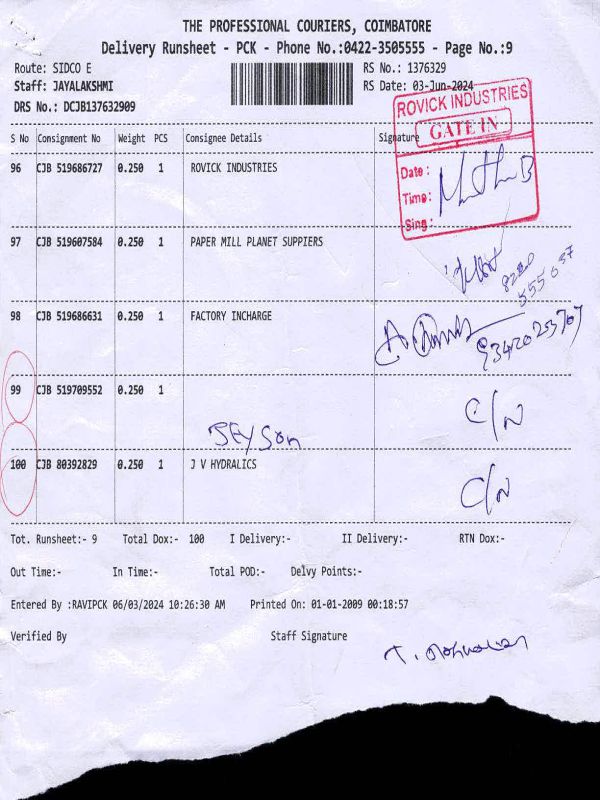 THE PROFESSIONAL COURIERS, COIMBATORE
Delivery Runsheet - PCK - Phone No.:0422-3505555 - Page No.:9
Route: SIDCO E RS No.: 1376329
Staff: JAYALAKSHMI RS Date: 03-Jun-2024
DRS No.: DCJB137632909
ROVICK INDUSTRIES
GATE IN
Date:
Time:
Sing:
S No Consignment No Weight PCS Consignee Details Signature
96 CJB 519686727 0.250 1 ROVICK INDUSTRIES
97 CJB 519607584 0.250 1 PAPER MILL PLANET SUPPIERS
98 CJB 519686631 0.250 1 FACTORY INCHARGE
99 CJB 519709552 0.250 1 C/N
JEYSon
100 CJB 80392829 0.250 1 J V HYDRALICS C/N
Tot. Runsheet:- 9 Total Dox:- 100 I Delivery:- II Delivery:- RTN Dox:-
Out Time:- In Time:- Total POD:- Delvy Points:-
Entered By :RAVIPCK 06/03/2024 10:26:30 AM Printed On: 01-01-2009 00:18:57
Verified By Staff Signature